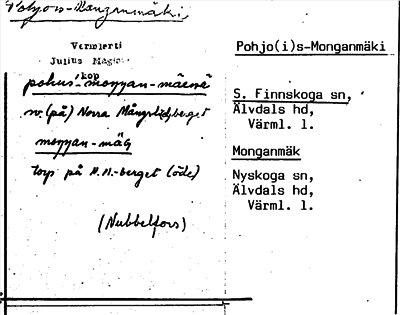 Pohjois-Monganmäki
Vermlerti
Julius Mägis
kop
pohus-moŋŋan-mäene
Pohjo(i)s-Monganmäki
sv. (på) Norra Mångslidberget
S. Finnskoga sn,
Älvdals hd,
Värml. l.
moŋŋan-mäg
torp på N.M.-berget (öde)
(Nubbelfors)
Monganmäk
Nyskoga sn,
Älvdals hd,
Värml. l.